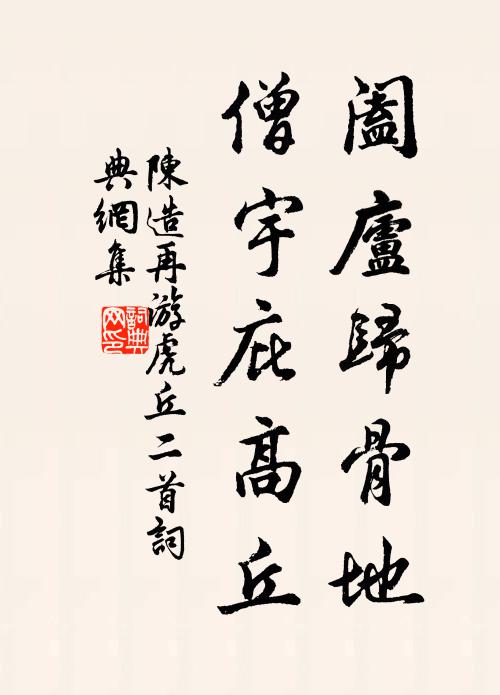 阖廬歸骨地
僧宇庇高丘
陳造再游虎丘二首詞
典網集
詞典
网印